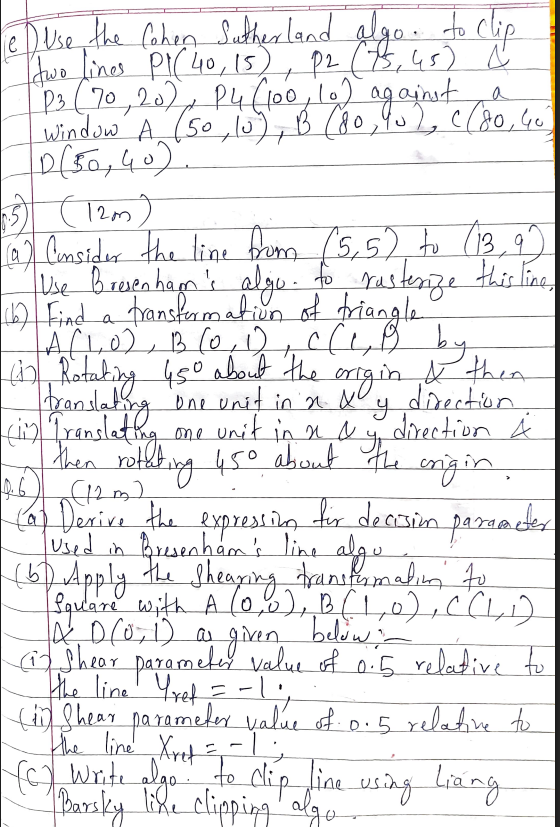 (e) Use the Cohen Sutherland algo. to clip
two lines P1(40,15), P2(75,45) &
P3(70,20), P4(100,10) against a
window A (50,10), B(80,10), C(80,40
D(50,40).
(12m)
(a) Consider the line from (5,5) to (13,9)
Use Bresenham's algo. to rasterize this line.
(b) Find a transformation of triangle
A(1,0), B(0,1), C(1,1) by
(i) Rotating 45° about the origin & then
translating one unit in x & y direction.
(ii) Translating one unit in x & y direction &
then rotating 45° about the origin.
Q.6) (12m)
(a) Derive the expression for decision parameter
used in Bresenham's line algo.
(b) Apply the shearing transformation to
square with A(0,0), B(1,0), C(1,1)
& D(0,1) as given below:-
(i) Shear parameter value of 0.5 relative to
the line Yref = -1;
(ii) Shear parameter value of 0.5 relative to
the line Xref = -1;
(C) Write algo. to clip line using Liang
Barsky like clipping algo.